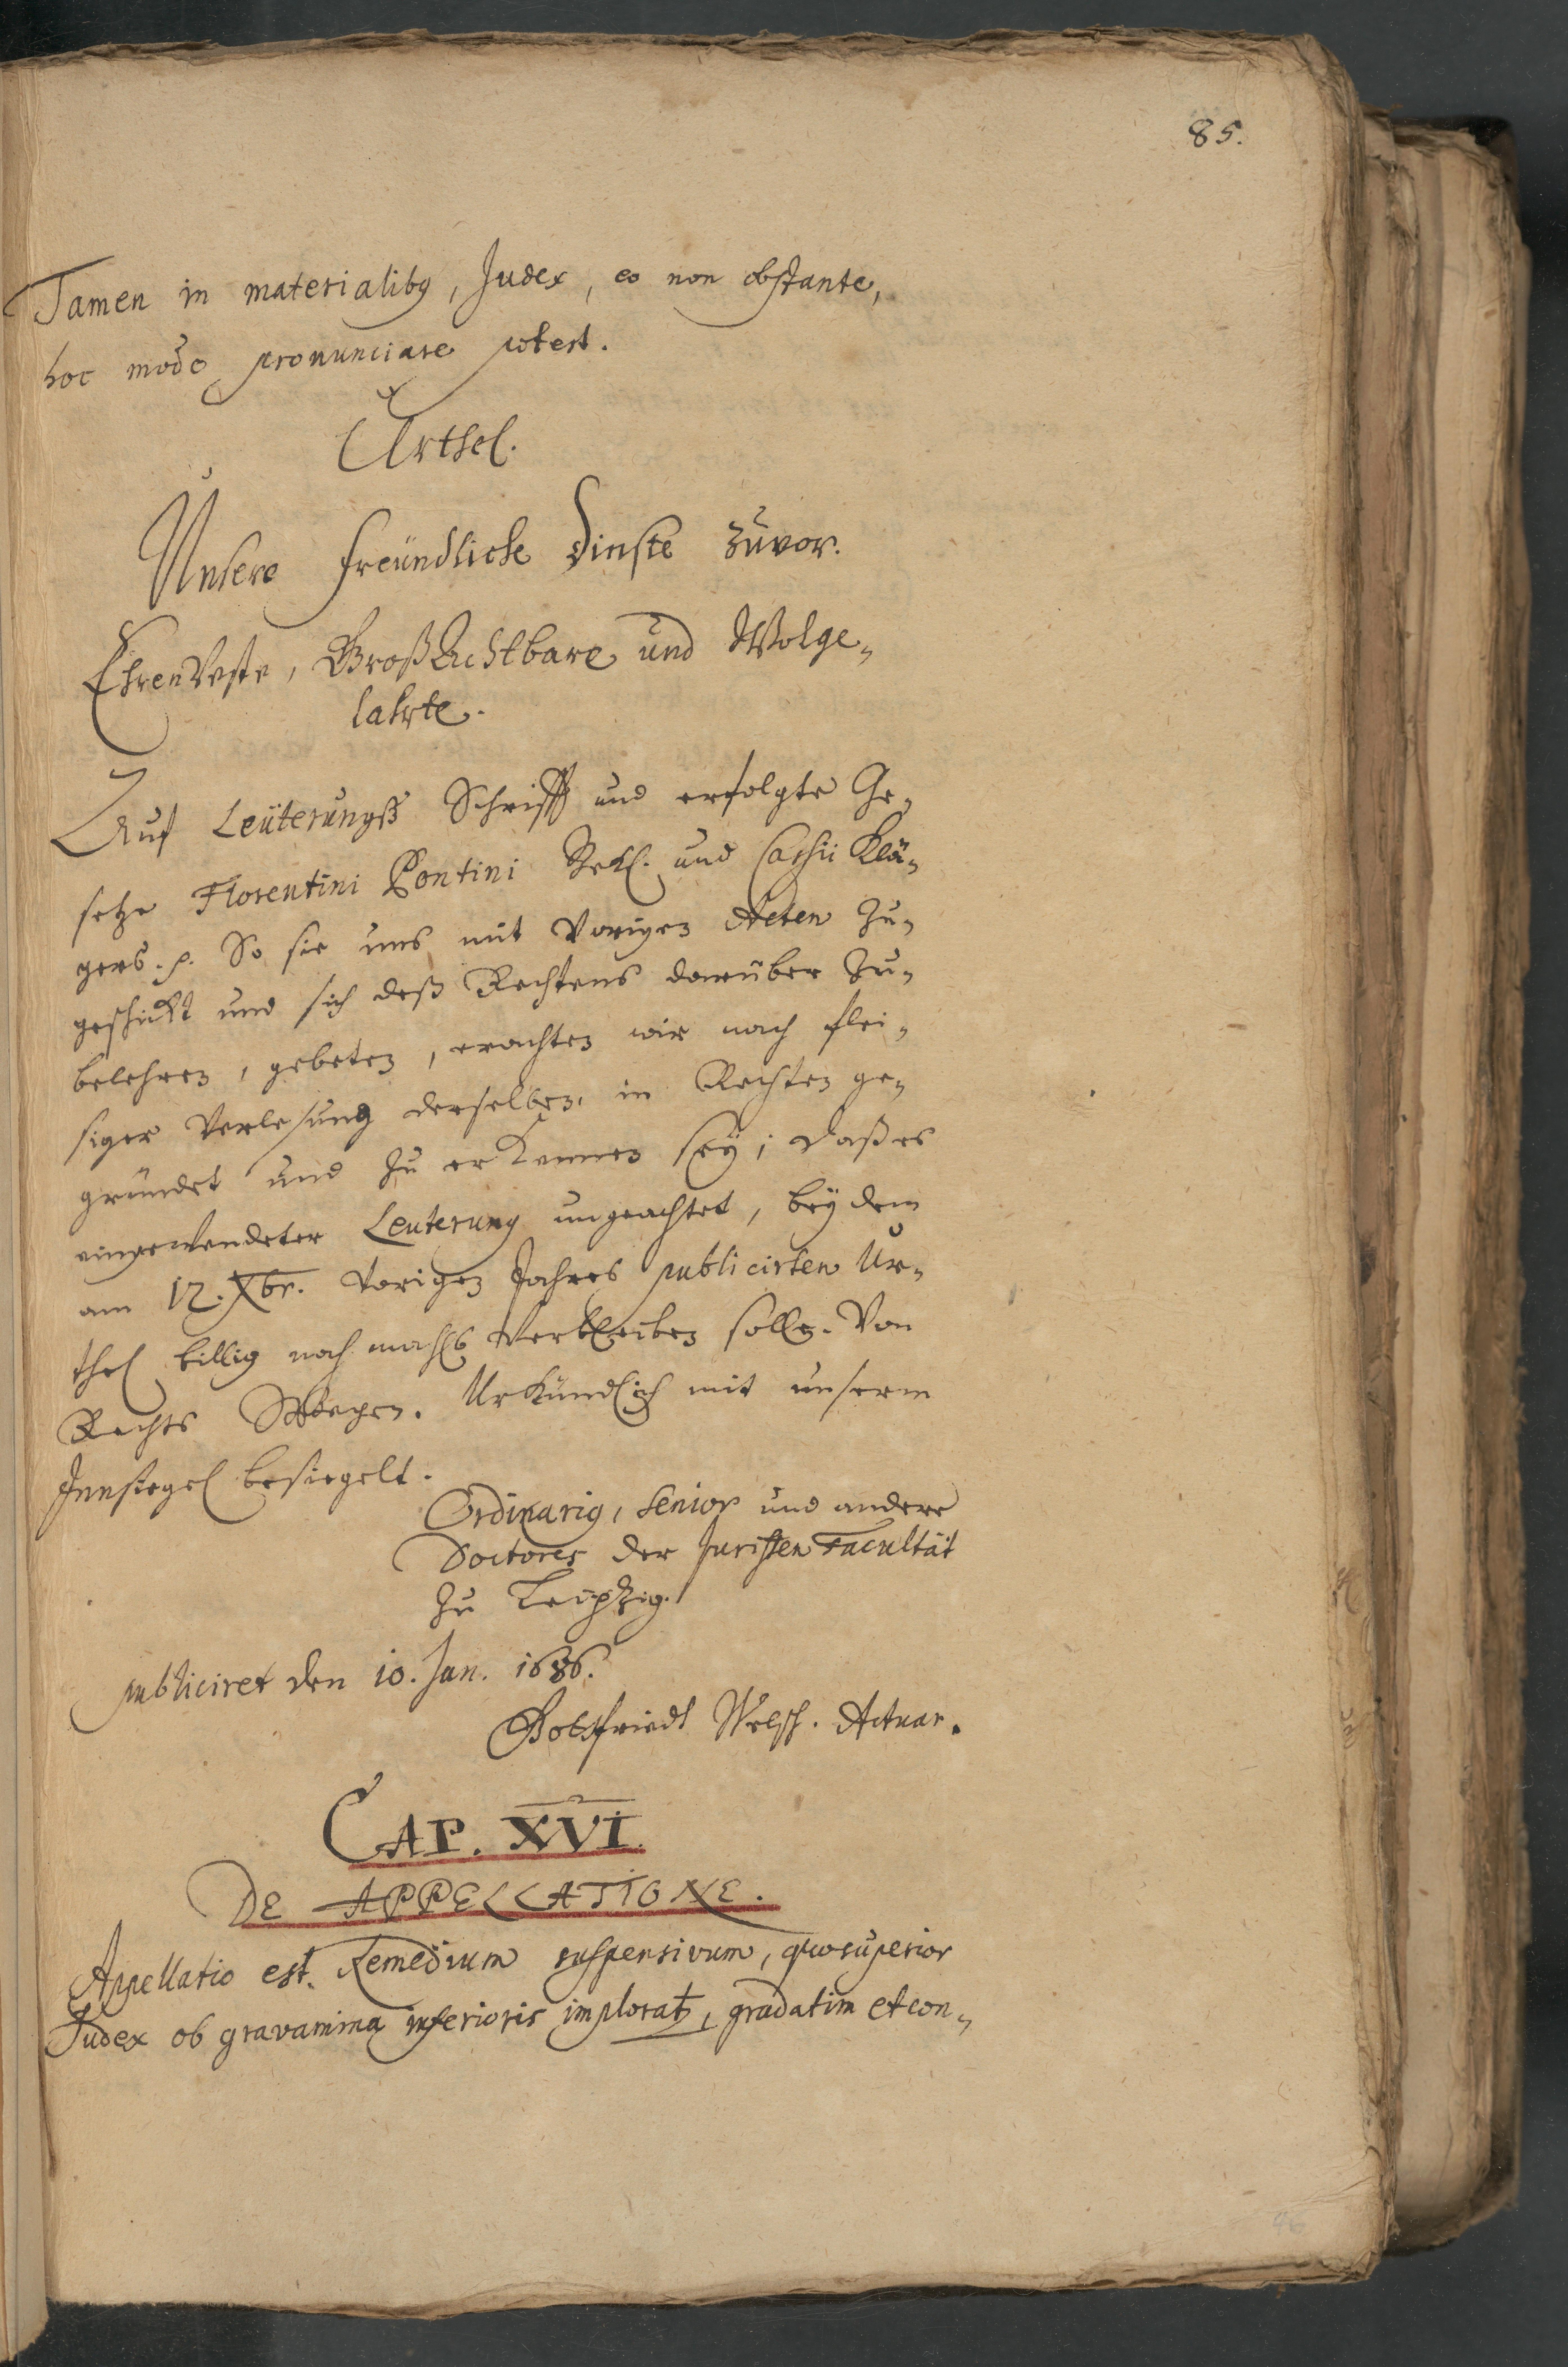 85.
Tamen in materialibꝰ, Judex, eo non obstante,
hoc modo pronunciare potest.
Urthel.
Unsere freündliche Dinste zuvor.
EhrenVeste, GroßAchtbare und Wolge„
lahrte.
Auf Leüterungß Schrifft und erfolgte Ge„
setze Florentini Pontini Bekl. und Cassii Klä„
gers. p. So sie uns mit Vorigen Acten zu„
geschickt und sich deß Rechtens darüber zu„
belehren, gebeten, erachten wir nach flei„
siger Verlesung derselben, in Rechten ge„
gründet und zu erkennen seÿ; daß es
eingewendeter Leuterung ungeachtet, beÿ dem
am 12. Xbr. Vorigen Jahres publicirten Ur„
thel billig nochmahls Verbleiben solle. Von
Rechts Wegen. Urkündlich mit unserm
Innsiegel besiegelt.
Ordinariꝰ, Senior und andere
Doctores der Juristen Facultät
zu Leipzig.
publiciret den 10. Jan. 1686.
Gottfriedt Welsch. Actuar.
CAP. XVI.
DE APPELLATIONE.
Appellatio est. Remedium suspensivum, quo superior
Judex ob gravamina inferioris implorat, gradatim et con„
96